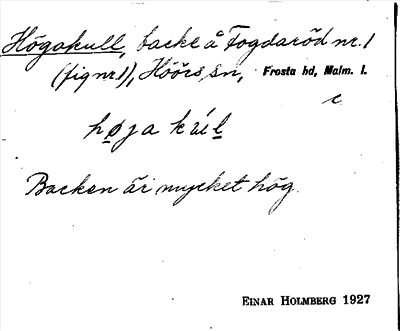 Högakull, backe å Fogdaröd nr. 1
(fig nr 1), Höörs sn, Frosta hd, Malm. l.
c
Backen är mycket hög.
EINAR HOLMBERG 1927